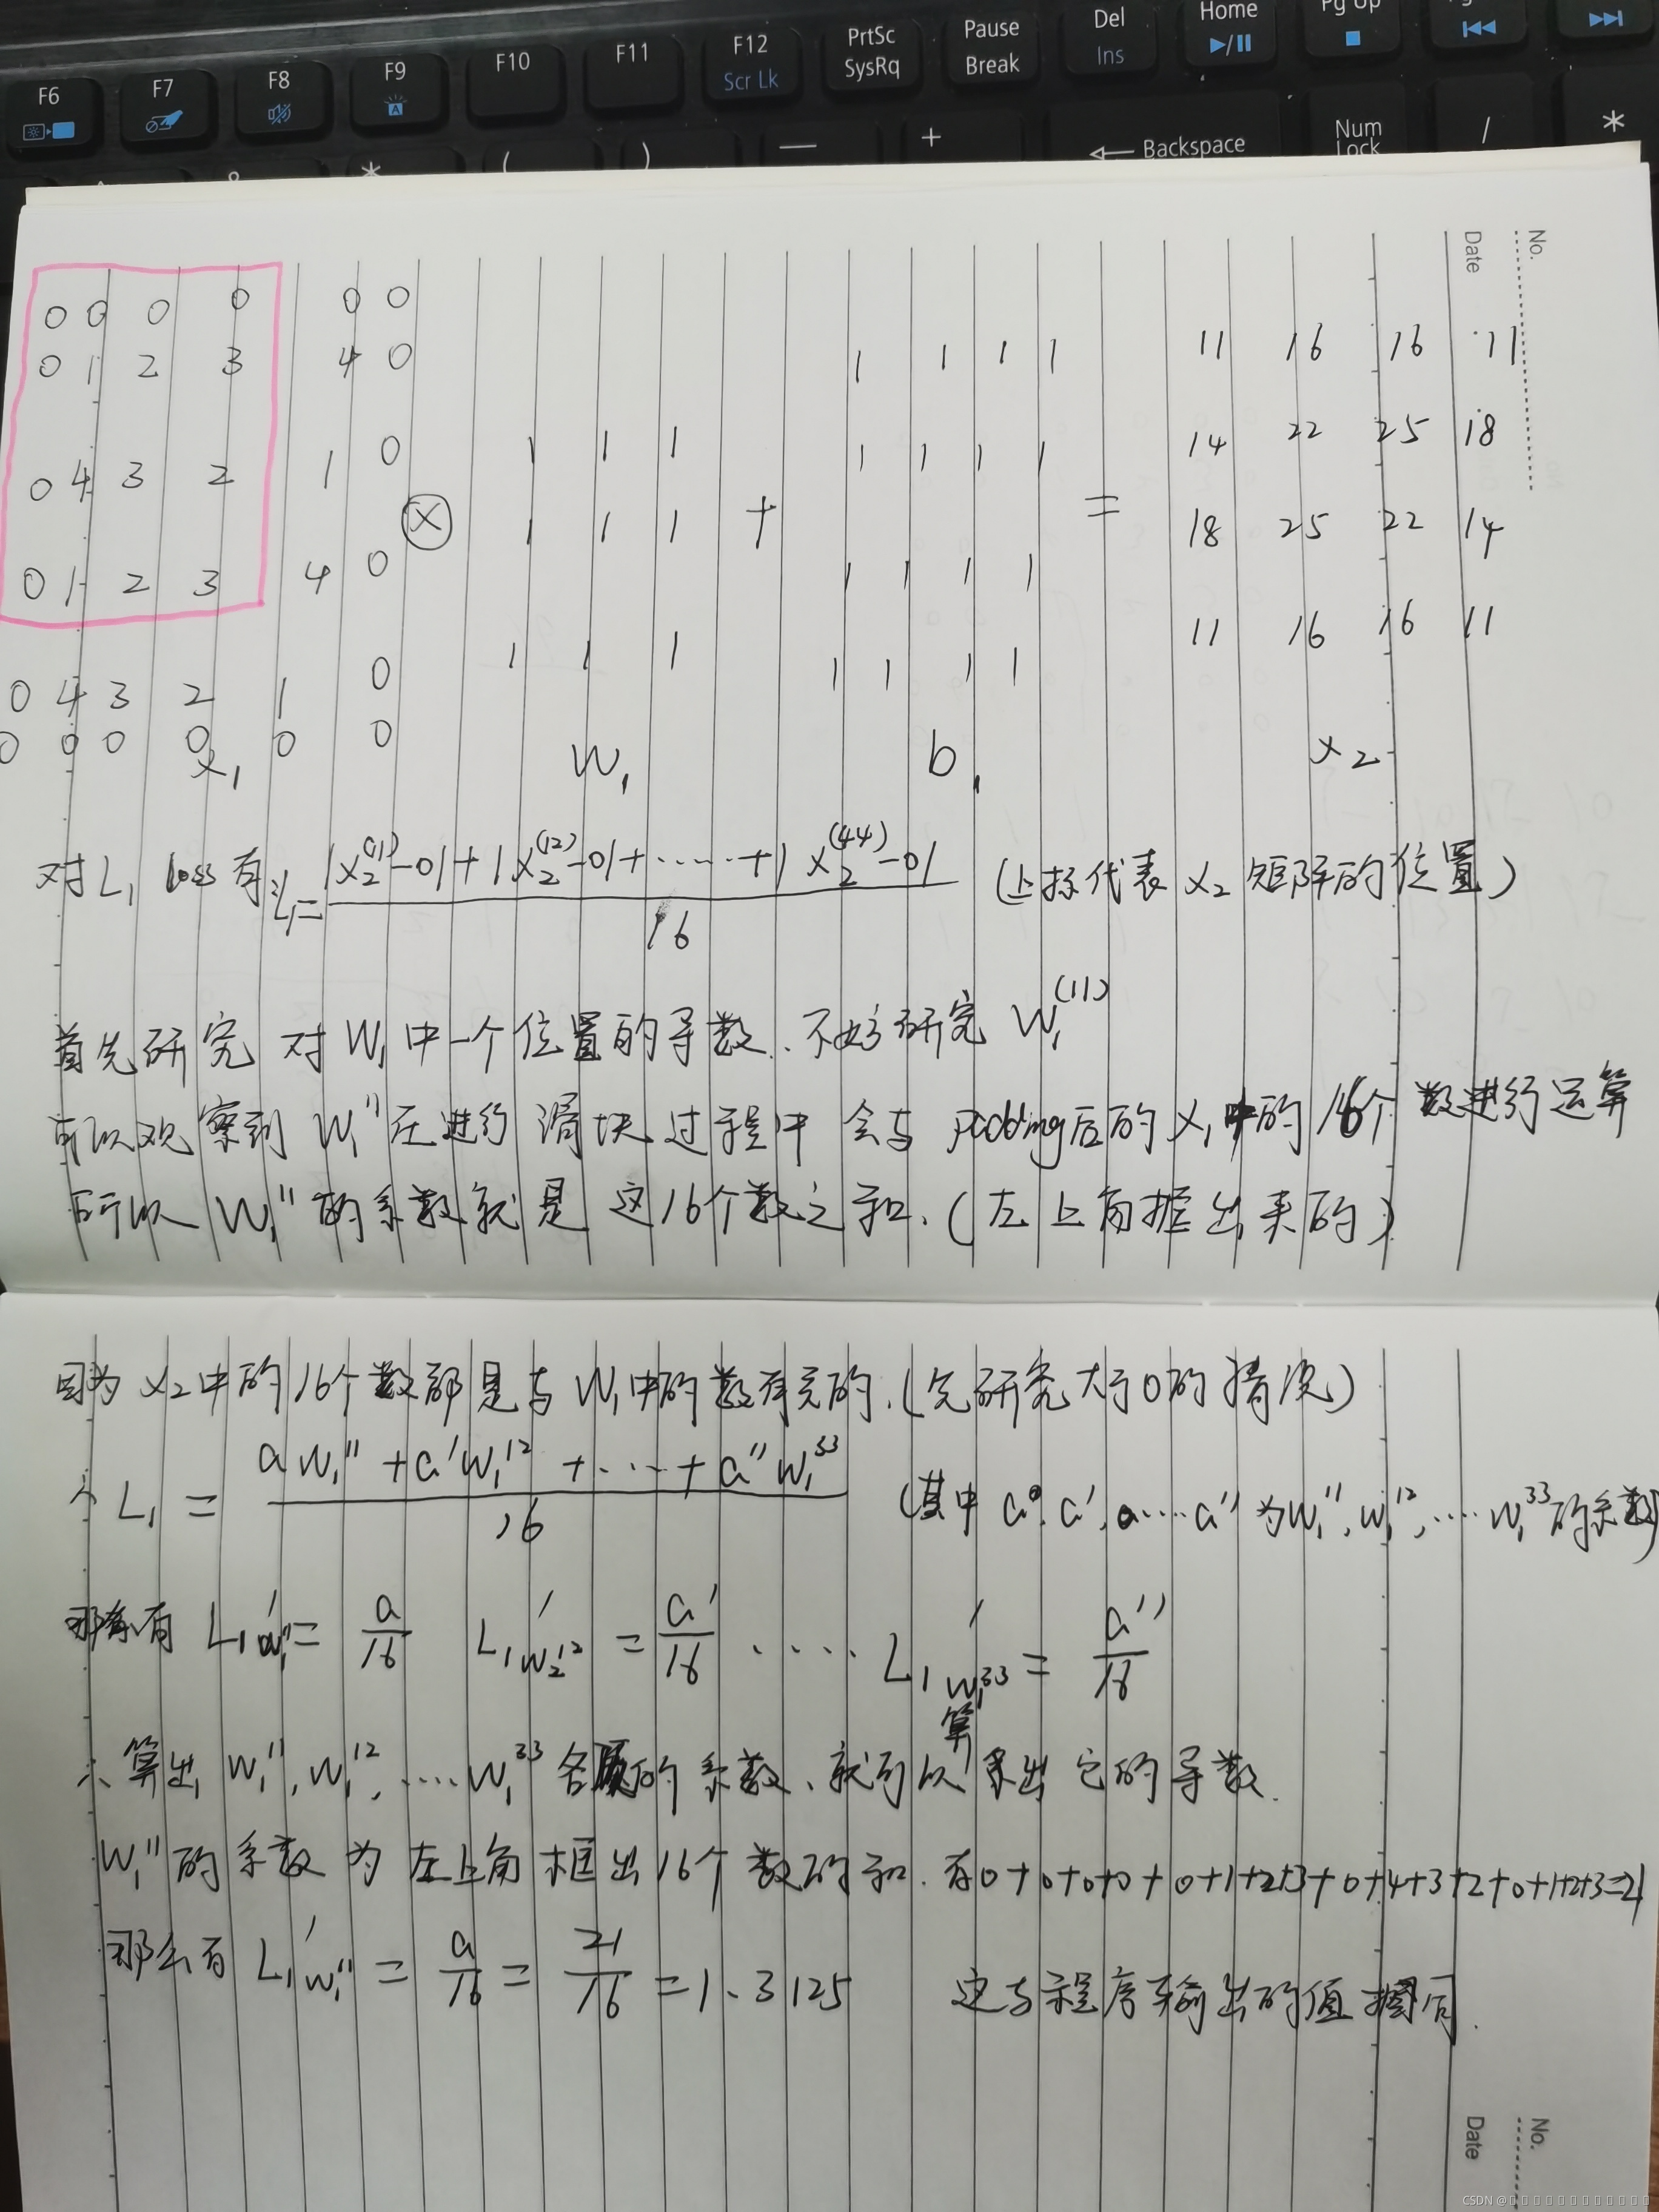 F6 F7 F8 F9 F10 F11 F12 PrtSc Pause Del Home Pg Up
Scr Lk SysRq Break Ins
& * ( ) — + ← Backspace Num Lock / *
No.
Date
0 0 0 0 0 0
0 1 2 3 4 0
0 4 3 2 1 0
0 1 2 3 4 0
0 4 3 2 1 0
0 0 0 0 0 0
x₁
⊗
1 1 1
1 1 1
1 1 1
W₁
+
1 1 1 1
1 1 1 1
1 1 1 1
1 1 1 1
b₁
=
11 16 16 11
14 22 25 18
18 25 22 14
11 16 16 11
x₂
对L₁ loss有 L₁= (|x₂⁽¹¹⁾-0|+|x₂⁽¹²⁾-0|+……+|x₂⁽⁴⁴⁾-0|)/16 (上标代表x₂矩阵的位置)
首先研究 对W₁中一个位置的导数、不妨研究 W₁⁽¹¹⁾
可以观察到 W₁¹¹在进行滑块过程中 会与padding后的x₁中的16个数进行运算
所以 W₁¹¹的系数就是 这16个数之和.(左上角框出来的)
因为x₂中的16个数都是与W₁中的数有关的.(先研究大于0的情况)
∴ L₁ = (aW₁¹¹+a'W₁¹²+…+a''W₁³³)/16 (其中 a, a', a……a'' 为W₁¹¹, W₁¹², …… W₁³³的系数)
那么有 L₁'w₁¹¹= a/16 L₁'w₂¹² = a'/16 …… L₁'w₁³³ = a''/16
∴ 算出 W₁¹¹, W₁¹², …… W₁³³ 各项的系数、就可以算出它的导数.
W₁¹¹的系数为左上角框出16个数的和. 有0+0+0+0+0+1+2+3+0+4+3+2+0+1+2+3=21
那么有 L₁'w₁¹¹ = a/16 = 21/16 = 1.3125 这与程序输出的值相同.
No.
Date
CSDN @